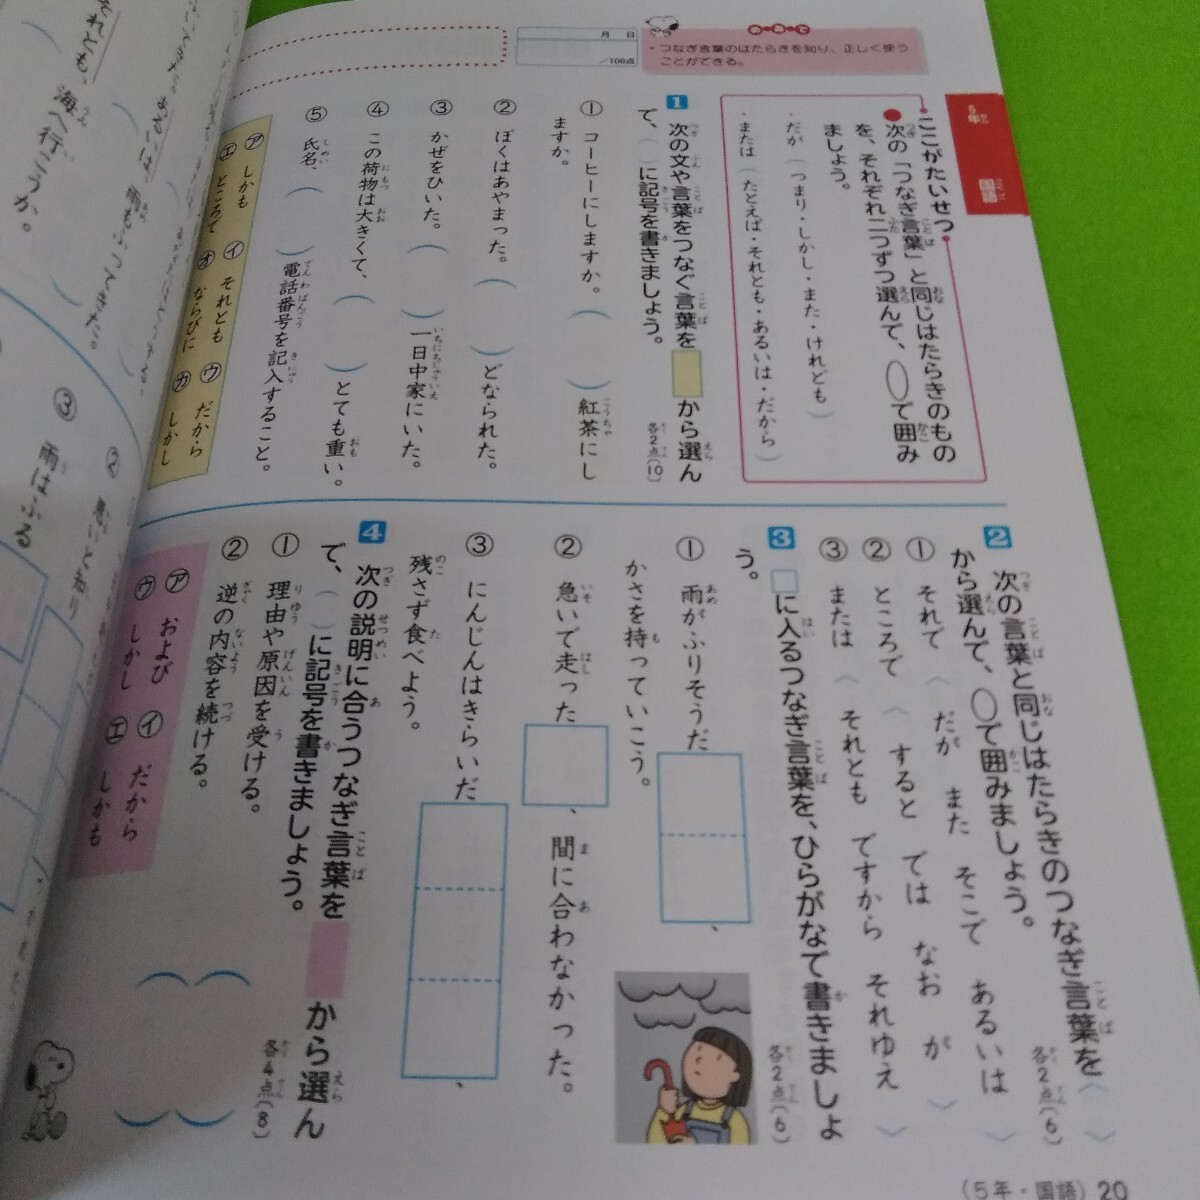 めあて
・つなぎ言葉のはたらきを知り、正しく使う
ことができる。
月　日
/100点
5年
国語
ここがたいせつ
●次の「つなぎ言葉」と同じはたらきのもの
を、それぞれ二つずつ選んで、○で囲み
ましょう。
・だが（つまり・しかし・また・けれども）
・または（たとえば・それとも・あるいは・だから）
1 次の文や言葉をつなぐ言葉を　から選ん
で、（　）に記号を書きましょう。
各2点（10）
① コーヒーにしますか。（　）紅茶にし
ますか。
② ぼくはあやまった。（　）どなられた。
③ かぜをひいた。（　）一日中家にいた。
④ この荷物は大きくて、（　）とても重い。
⑤ 氏名、（　）電話番号を記入すること。
㋐ しかも ㋑ それとも ㋒ だから
㋓ ところで ㋔ ならびに ㋕ しかし
2 次の言葉と同じはたらきのつなぎ言葉を〈　〉
から選んで、○で囲みましょう。
各2点（6）
① それで〈だが　また　そこで　あるいは〉
② ところで〈すると　では　なお　が〉
③ または〈それとも　ですから　それゆえ〉
3 □に入るつなぎ言葉を、ひらがなで書きましょ
う。
各2点（6）
① 雨がふりそうだ□□、
かさを持っていこう。
② 急いで走った□、間に合わなかった。
③ にんじんはきらいだ□□□、
残さず食べよう。
4 次の説明に合うつなぎ言葉を　から選ん
で、（　）に記号を書きましょう。
各4点（8）
① 理由や原因を受ける。（　）
② 逆の内容を続ける。（　）
㋐ および ㋑ だから
㋒ しかし ㋓ しかも
（5年・国語）20
それとも、海へ行こうか。
あるいは、
雨もふってきた。
③ 雨はふる
②